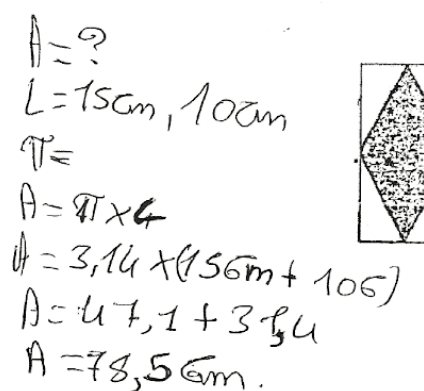 A = ?
L = 15cm, 10cm
π =
A = π × 4
A = 3,14 × (15cm + 10c)
A = 47,1 + 31,4
A = 78,5cm.